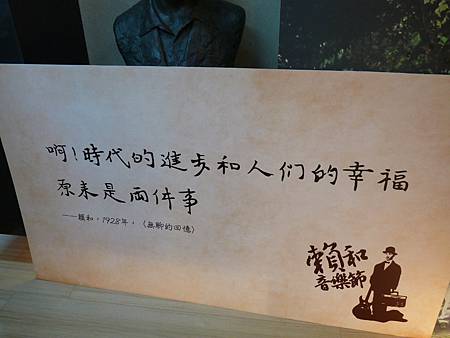 啊!時代的進步和人们的幸福
原來是兩件事
──賴和,1928年,〈無聊的回憶〉
賴和
音樂節